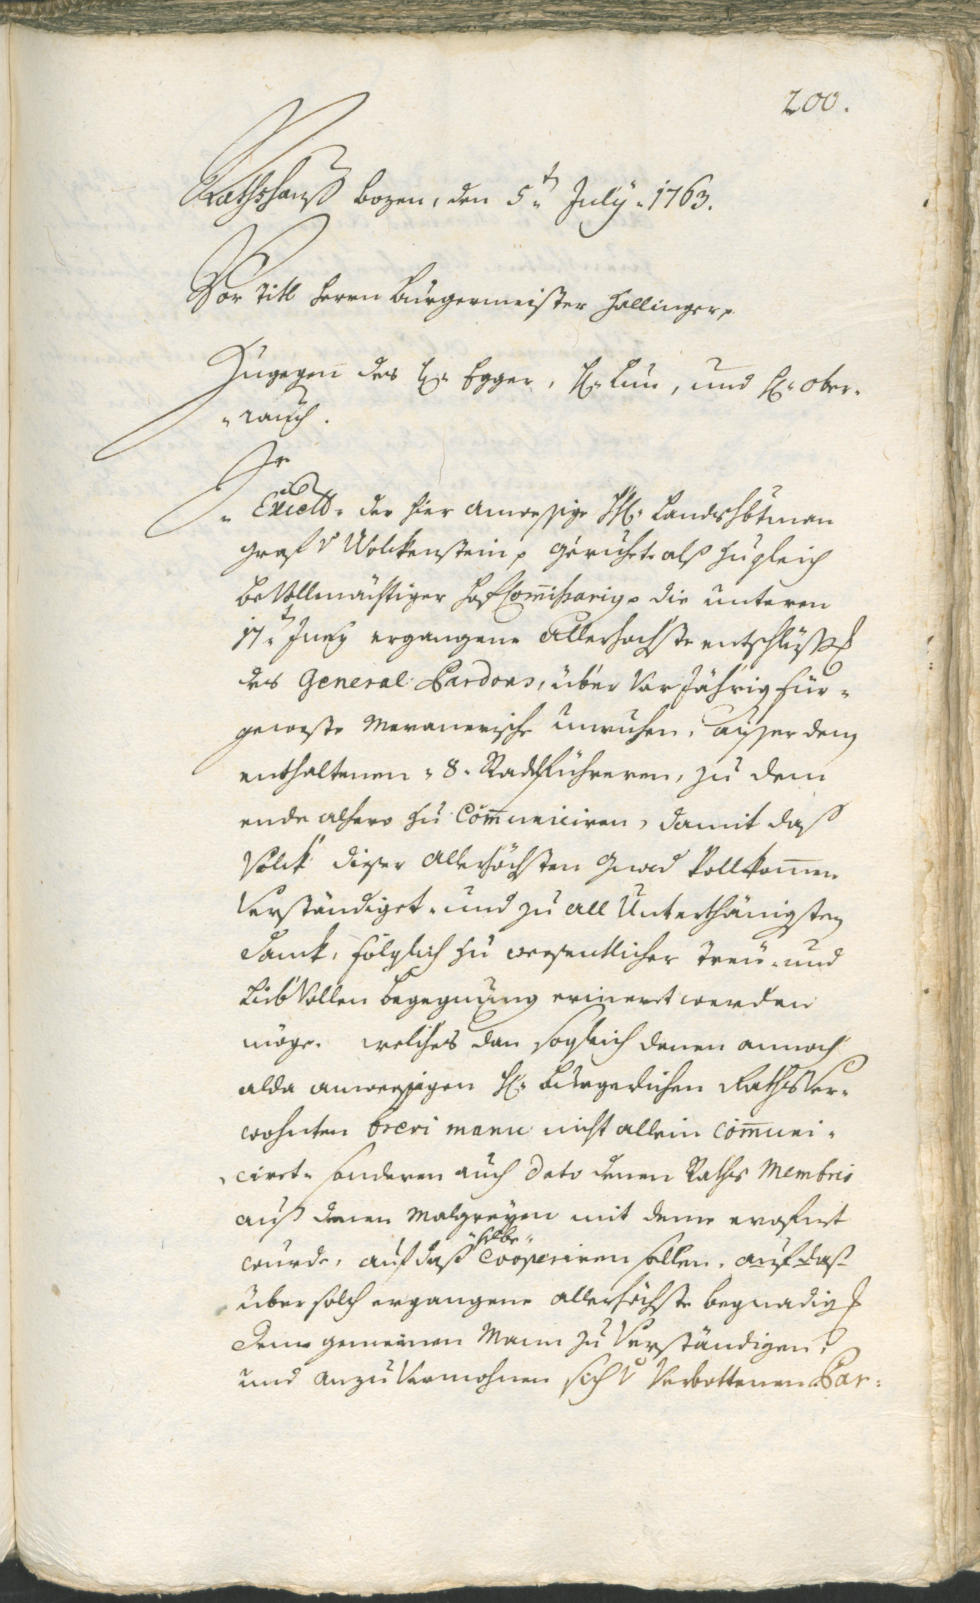 200.
Rathshauß Bozen, den 5.t July. 1763.
Vor Titl Herrn Burgermeister Hallinger
Zugegen des H. Egger, H. Lun, und H. Ober-
rauch.
Sr
Excell. der hier anweßige H. Landshbtman
Graf v Wolckenstein, geruhete alß zugleich
bevollmächtiger Hof Com̄issarig die unteren
17.t Juny ergangene Allerhochste entschlüss
des General Pardons, über Vorjährig für-
geweste Meranerische Unruhen, ausser deny
enthaltenen 8. Radlführeren, zu dem
ende alhero zu Com̄uniciren, damit daß
Volck dieser Allerhöchsten Gnad Vollkom̄en
Verständiget. und zu all Unterthänigsten
Danck, folglich zu wesentlicher Treu- und
Liebvollen begegnung erineret werden
möge. welches dan sogleich denen annoch
alda anweßigen H. Burgerlichen Raths Ver-
wohnten brevi manu nicht allein com̄uni-
cirt. sonderen auch dato denen Raths Membris
auß denen Malgreyen mit deme erofnet
wurde, auf daß selbe cooperiren sollen. auf daß
über solch ergangene allerhöchste begnadig
dem gemeinen Mann zu Verständigen,
und anzuvermahnen sich v Verbottenen Par-